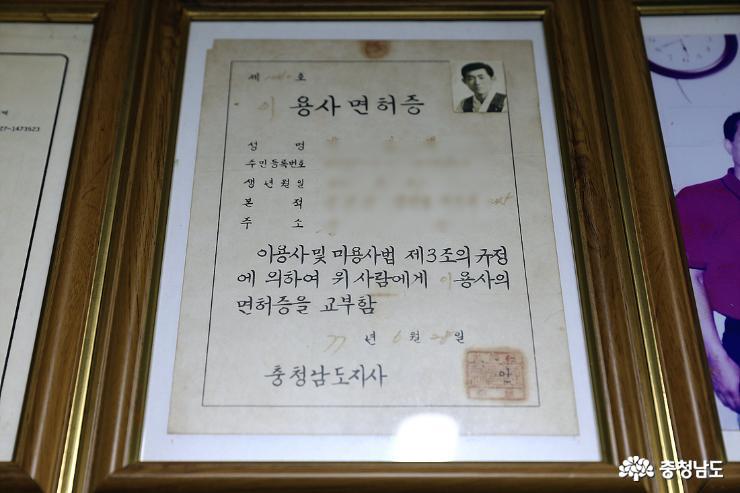 27-1473523
제 호
이 용사면허증
성 명
주민등록번호
생년월일
본 적
주 소
이용사및 미용사법 제3조의 규정
에 의하여 위 사람에게 이용사의
면허증을 교부함
77 년 6 월 28 일
충청남도지사
인
충청남도